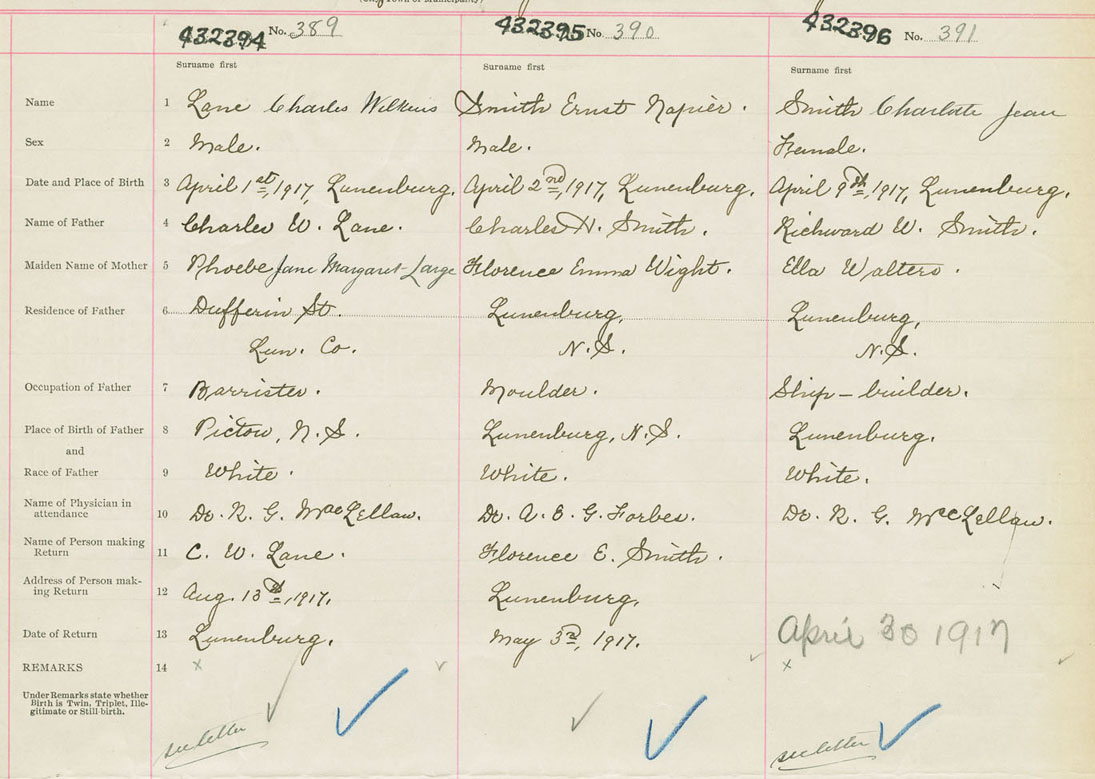 432394 No. 389 432395 No. 390 432396 No. 391
Surname first Surname first Surname first
Name 1 Lane Charles Wilkins Smith Ernst Napier. Smith Charlotte Jean
Sex 2 Male. Male. Female.
Date and Place of Birth 3 April 1st, 1917, Lunenburg. April 2nd, 1917, Lunenburg. April 9th, 1917, Lunenburg.
Name of Father 4 Charles W. Lane. Charles H. Smith. Richward W. Smith.
Maiden Name of Mother 5 Phoebe Jane Margaret Large Florence Emma Wight. Ella Walters.
Residence of Father 6 Dufferin St. Lunenburg, Lunenburg,
Lun. Co. N.S. N.S.
Occupation of Father 7 Barrister. Moulder. Ship-builder.
Place of Birth of Father 8 Pictou, N.S. Lunenburg, N.S. Lunenburg.
and
Race of Father 9 White. White. White.
Name of Physician in
attendance 10 Dr. R. G. MacLellan. Dr. A. E. G. Forbes. Dr. R. G. McLellan.
Name of Person making
Return 11 C. W. Lane. Florence E. Smith.
Address of Person mak-
ing Return 12 Aug. 13th, 1917. Lunenburg,
Date of Return 13 Lunenburg. May 3rd, 1917. April 30 1917
REMARKS 14 x x
Under Remarks state whether
Birth is Twin, Triplet, Ille-
gitimate or Still-birth.
see letter see letter